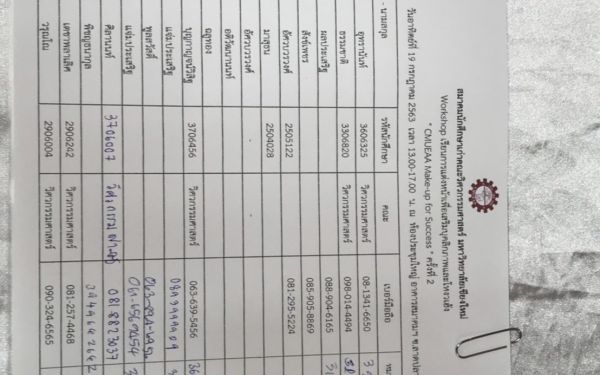 สมาคมนักศึกษาเก่าคณะวิศวกรรมศาสตร์ มหาวิทยาลัยเชียงใหม่
Workshop เรียนการแต่งหน้าเพื่อเสริมบุคลิกภาพและโหงวเฮ้ง
" CMUEAA Make-up for Success " ครั้งที่ 2
วันอาทิตย์ที่ 19 กรกฎาคม 2563 เวลา 13.00-17.00 น. ณ ห้องประชุมใหญ่ อาคารสมาคมฯ
- นามสกุล รหัสนักศึกษา คณะ เบอร์มือถือ
อุทรานันท์ 3606325 วิศวกรรมศาสตร์ 08-1341-6650
ธรรมชาติ 3306820 วิศวกรรมศาสตร์ 098-014-4494
ผลประเสริฐ 088-904-6165
สังข์เพชร 085-905-8869
อัศวบวรวงศ์ 2505122 081-295-5224
มาสุธน 2504028
อัศวบวรวงศ์ -
อดิวัฒนานนท์ -
ฉลูทอง
บุญกาญจน์วิสิฐ 3706456 วิศวกรรมศาสตร์ 063-639-5456
แจ่มประเสริฐ
พูลสวัสดิ์
แจ่มประเสริฐ
ศิลานนท์ 3706007 081-8873037
พิชญธนากูล
เดชาพลาเลิศ 2906242 วิศวกรรมศาสตร์ 081-257-4468
วรุณโณ 2906004 วิศวกรรมศาสตร์ 090-324-6565